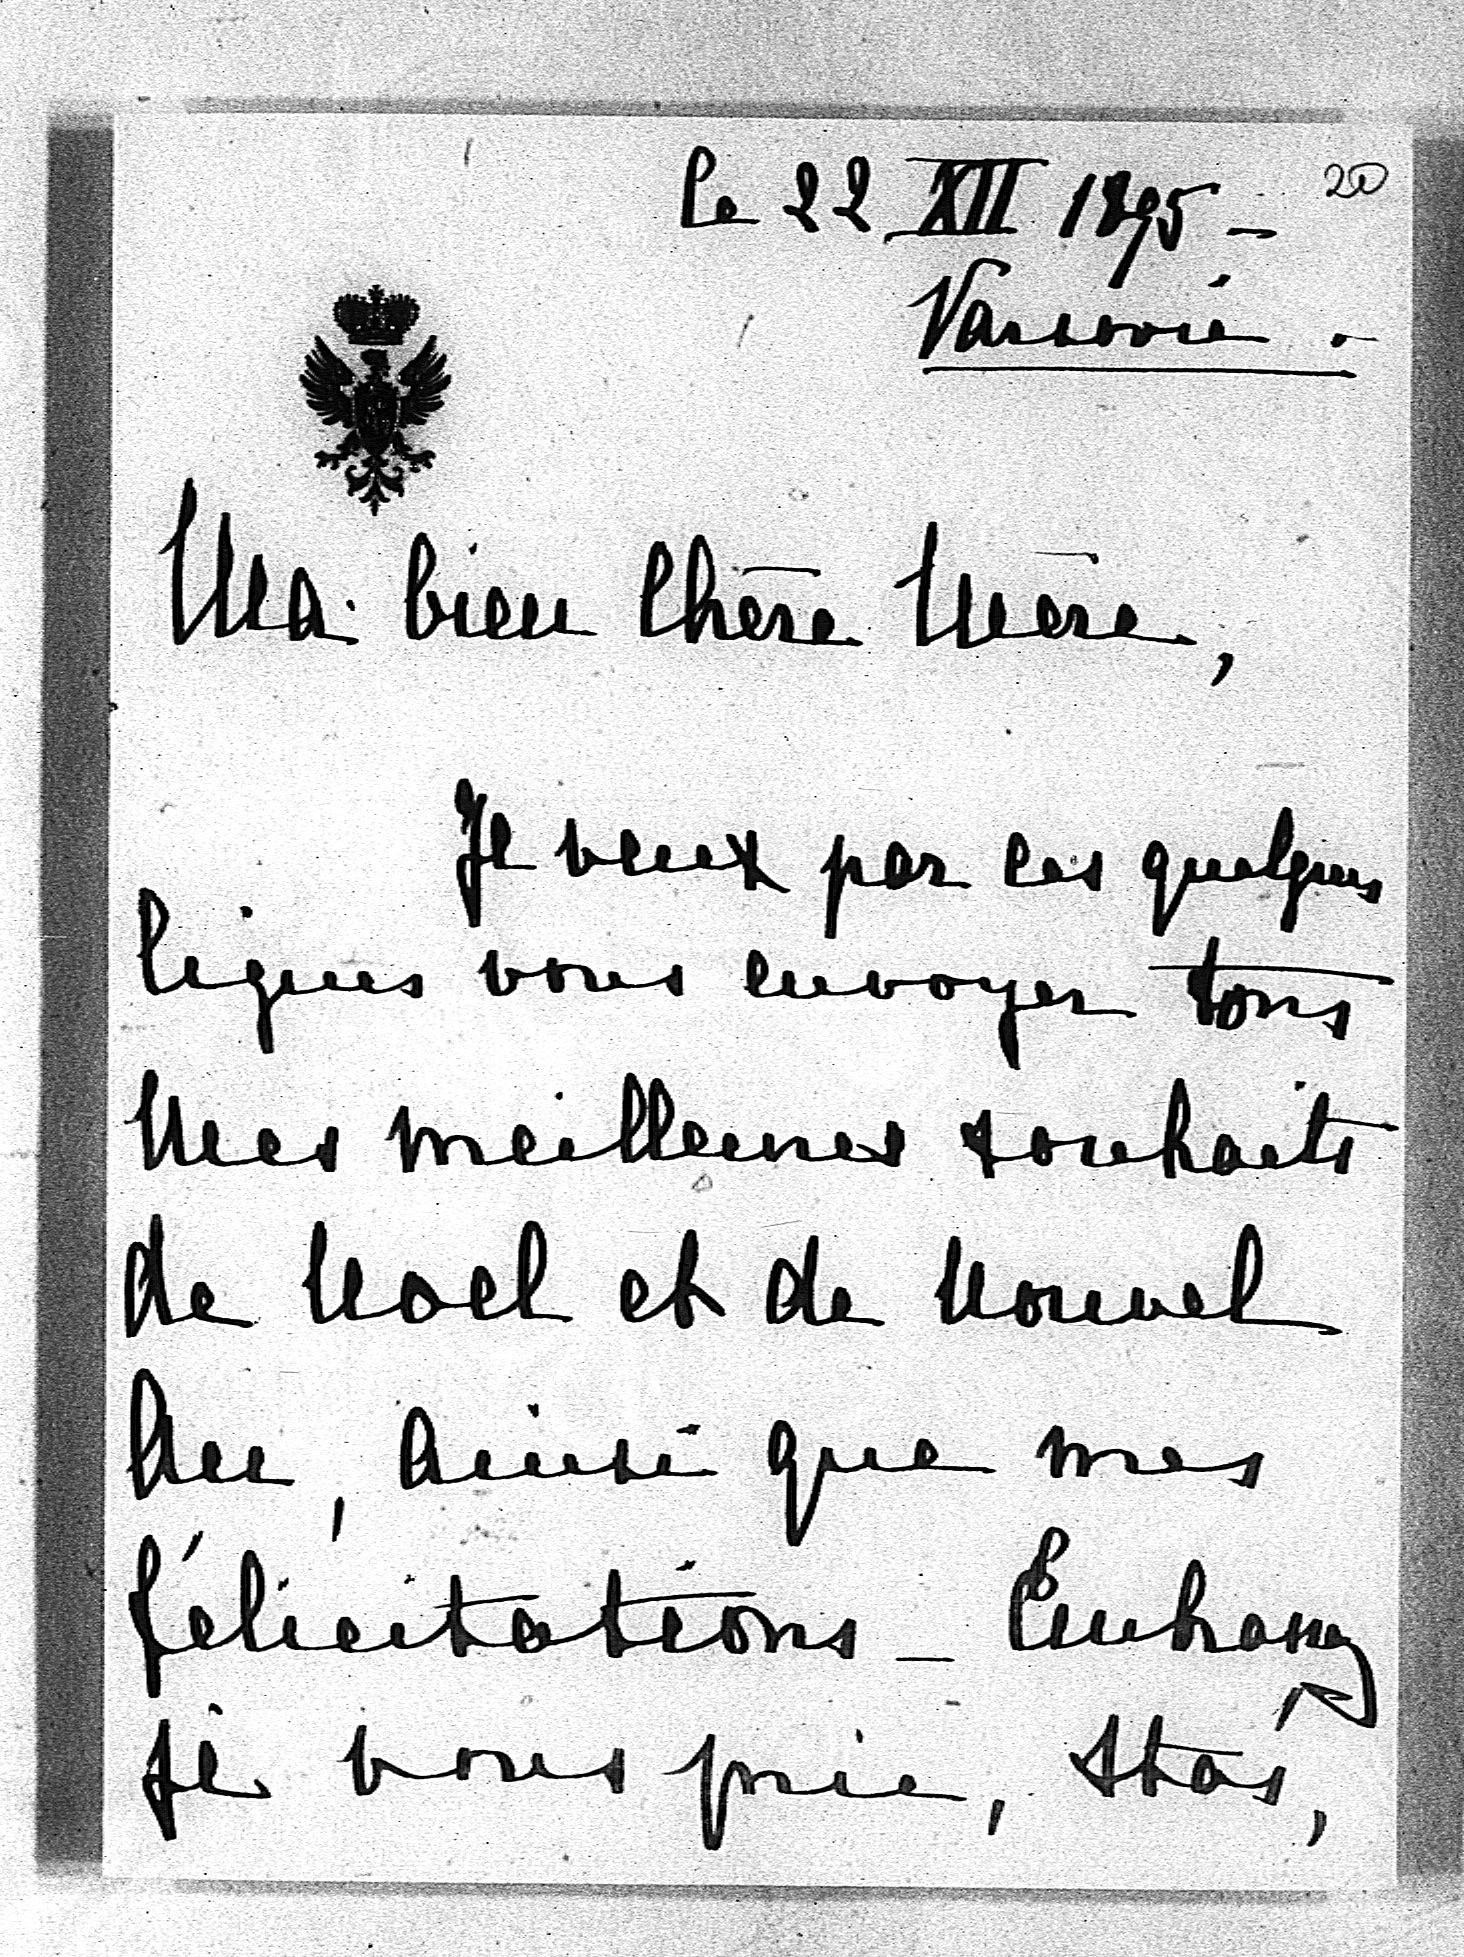 Le 22 XII 1895 –
20
Varsovie.
Ma bien Chère Mère,
Je veux par ces quelques
lignes vous envoyer tous
Mes meilleures souhaits
de Noel et de Nouvel
An, Ainsi que mes
félicitations – Embrassez
je vous prie, Staś,